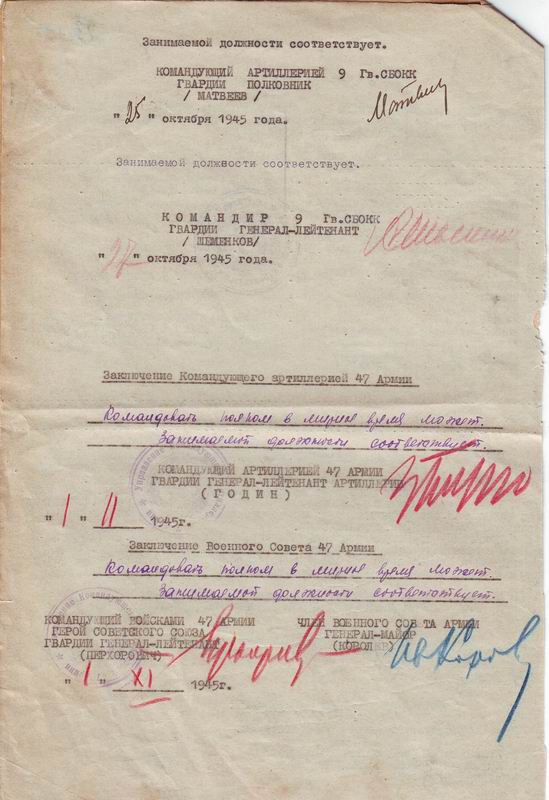 Занимаемой должности соответствует.
КОМАНДУЮЩИЙ АРТИЛЛЕРИЕЙ 9 Гв.СБОКК
ГВАРДИИ ПОЛКОВНИК
/ МАТВЕЕВ /
"25" октября 1945 года.
Занимаемой должности соответствует.
КОМАНДИР 9 Гв.СБОКК
ГВАРДИИ ГЕНЕРАЛ-ЛЕЙТЕНАНТ
/ ШЕМЕНКОВ/
"27" октября 1945 года.
Заключение Командующего артиллерией 47 Армии
Командовать полком в мирное время может.
Занимаемой должности соответствует.
КОМАНДУЮЩИЙ АРТИЛЛЕРИЕЙ 47 АРМИИ
ГВАРДИИ ГЕНЕРАЛ-ЛЕЙТЕНАНТ АРТИЛЛЕРИИ
( ГОДИН )
"1" 11 1945г.
Заключение Военного Совета 47 Армии
Командовать полком в мирное время может.
Занимаемой должности соответствует.
КОМАНДУЮЩИЙ ВОЙСКАМИ 47 АРМИИ ЧЛЕН ВОЕННОГО СОВ ТА АРМИИ
ГЕРОЙ СОВЕТСКОГО СОЮЗА ГЕНЕРАЛ-МАЙОР
ГВАРДИИ ГЕНЕРАЛ-ЛЕЙТЕНАНТ (КОРОЛЕВ)
(ПЕРХОРОВИЧ)
"1" XI 1945г.